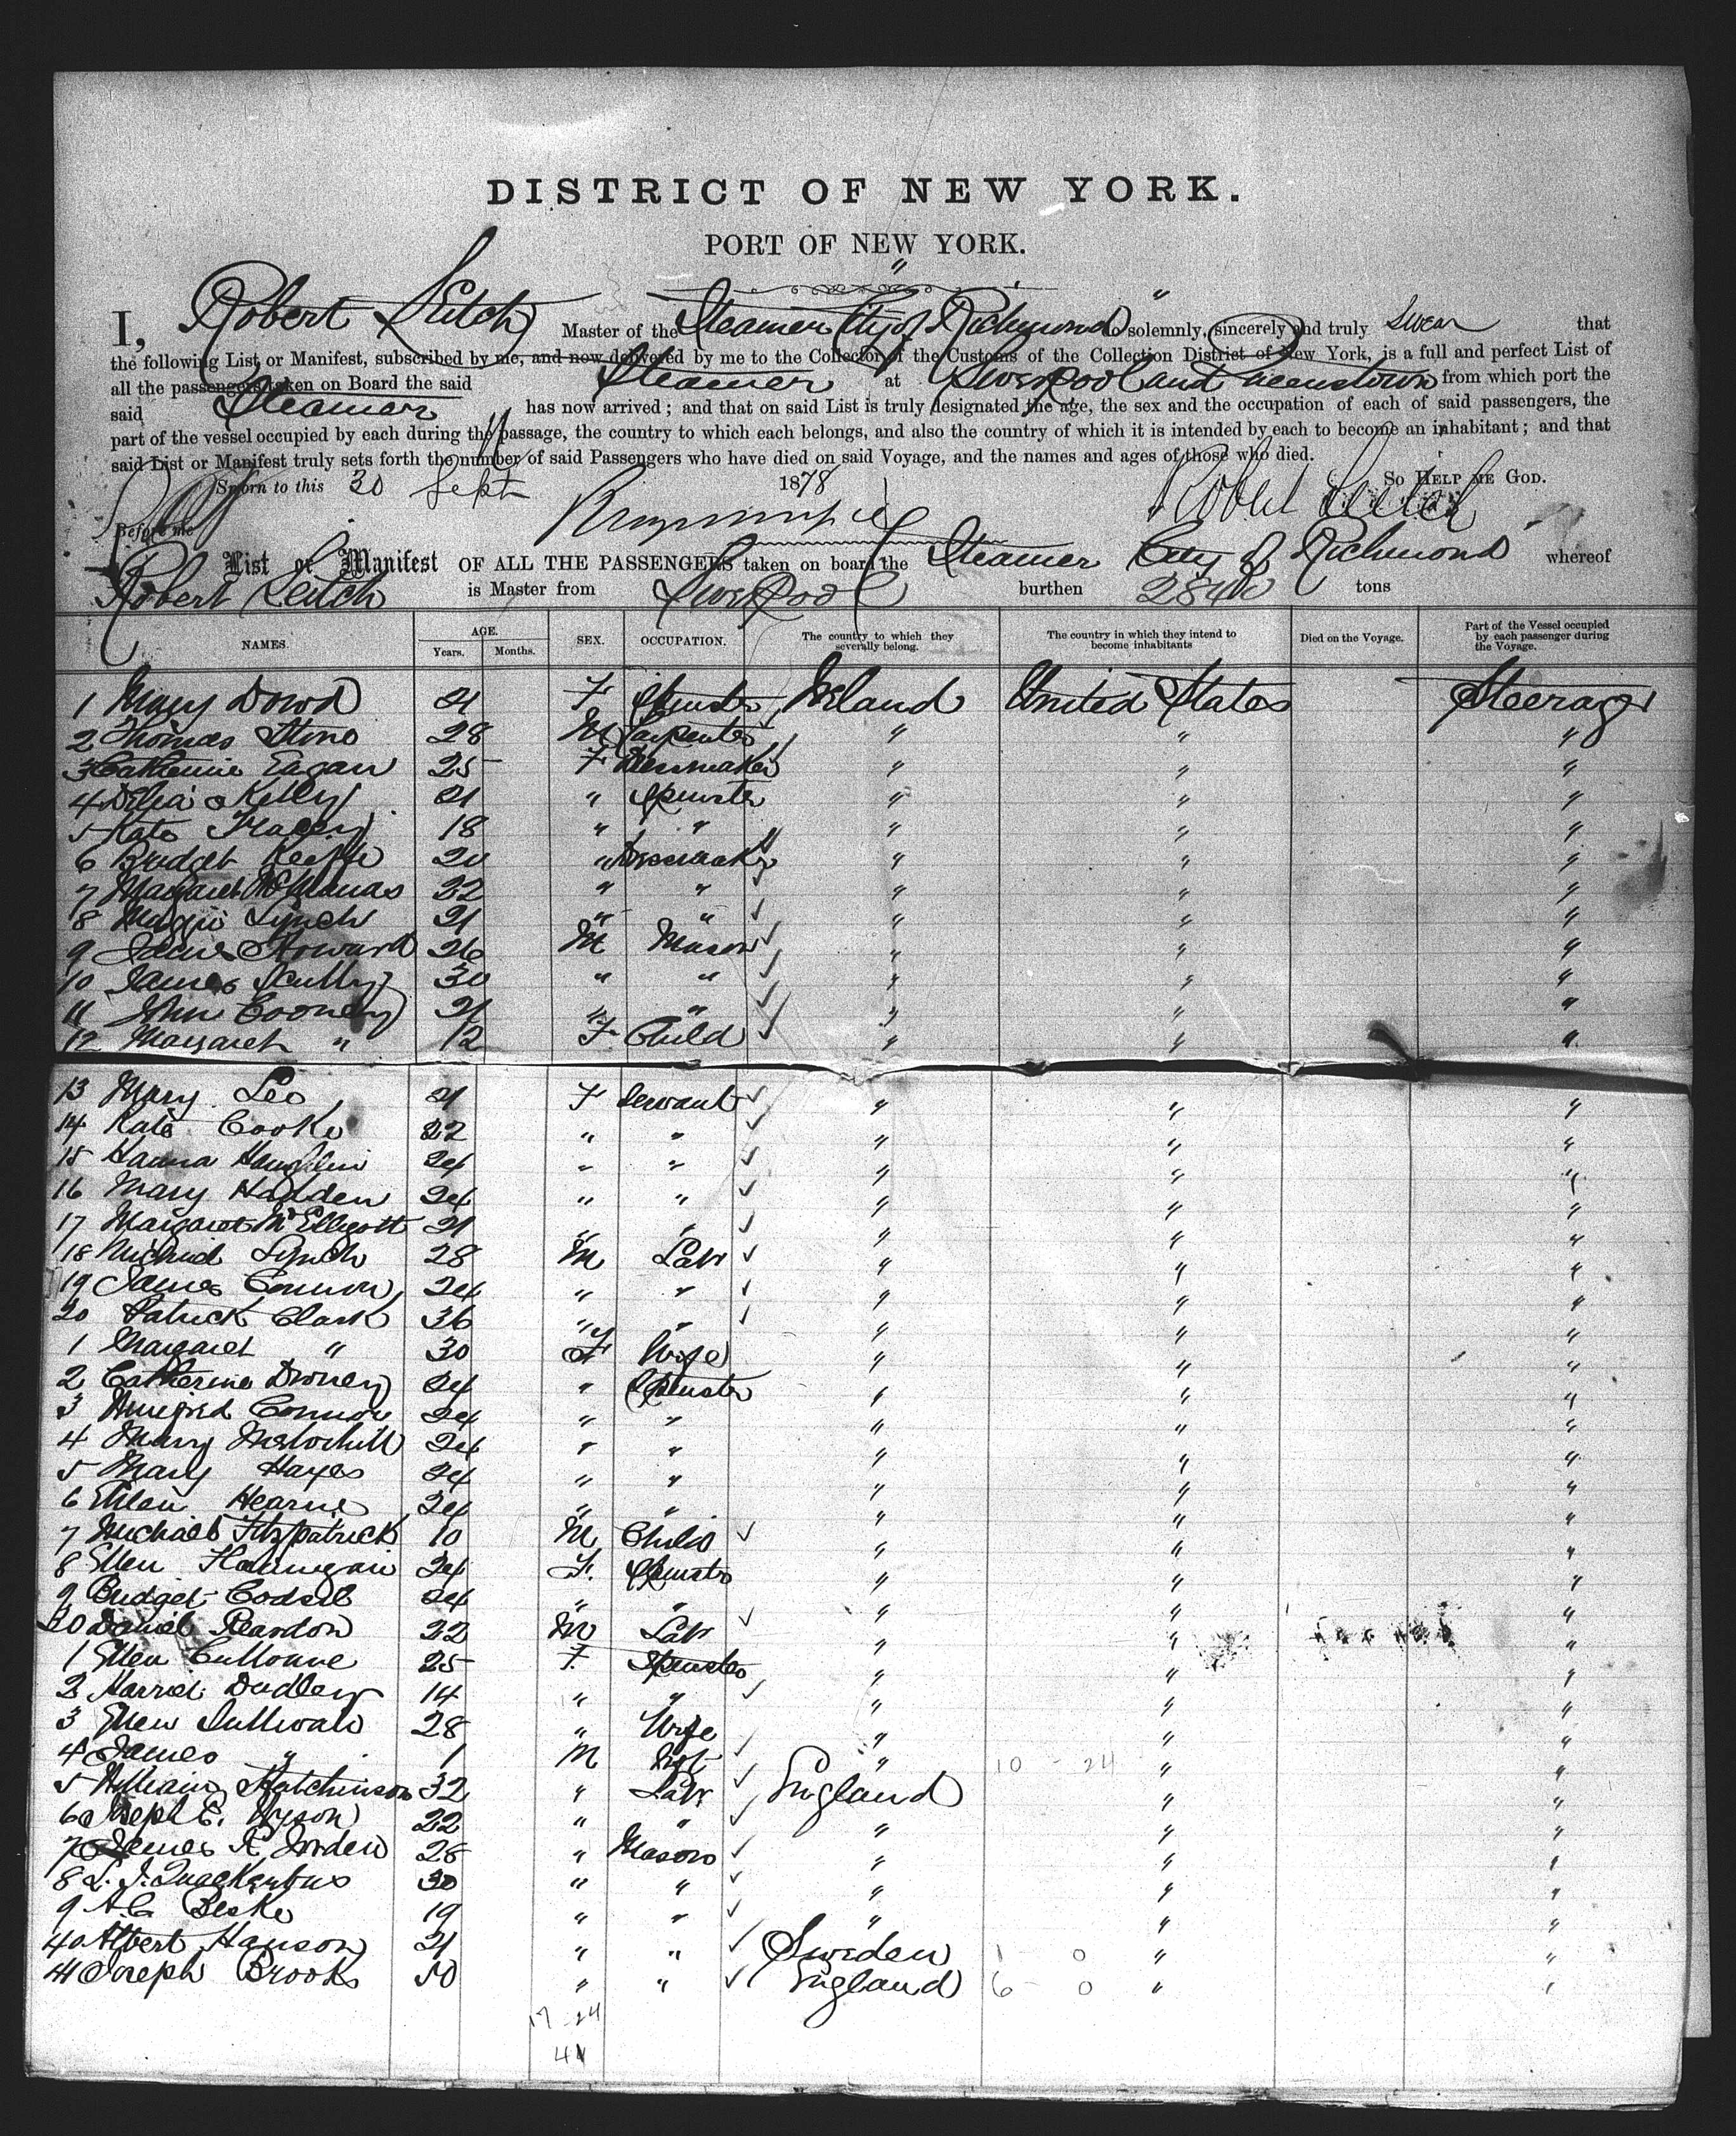 DISTRICT OF NEW YORK.
PORT OF NEW YORK.
I, Robert Leitch Master of the Steamer City of Richmond do solemnly, sincerely and truly swear that
the following List or Manifest, subscribed by me, and now delivered by me to the Collector of the Customs of the Collection District of New York, is a full and perfect List of
all the passengers taken on Board the said Steamer at Liverpool and Queenstown from which port the
said Steamer has now arrived; and that on said List is truly designated the age, the sex and the occupation of each of said passengers, the
part of the vessel occupied by each during the passage, the country to which each belongs, and also the country of which it is intended by each to become an inhabitant; and that
said List or Manifest truly sets forth the number of said Passengers who have died on said Voyage, and the names and ages of those who died.
So Help me God.
Sworn to this 30 Sept 1878 Robert Leitch
Before me
List or Manifest OF ALL THE PASSENGERS taken on board the Steamer City of Richmond whereof
Robert Leitch is Master from Liverpool burthen tons
NAMES. AGE. Years. Months. SEX. OCCUPATION. The country to which they severally belong. The country in which they intend to become inhabitants Died on the Voyage. Part of the Vessel occupied by each passenger during the Voyage.
1 Mary Dowd 21 F Spinster Ireland United States Steerage
2 Thomas 28 M Carpenter " " "
3 Catherine Eagan 25 F Dressmaker " " "
4 Delia Kelly 21 " Spinster " " "
5 Kate Tracey 18 " " " " "
6 Bridget Keeffe 20 " Dressmaker " " "
7 Margaret McManus 22 " " " " "
8 Maggie Lynch 21 " " " " "
9 James Howard 26 M Mason " " "
10 James Scully 30 " " " " "
11 John Cooney 21 " " " " "
12 Margaret " 12 F Child " " "
13 Mary Leo 21 F Servant " " "
14 Kate Cooke 22 " " " " "
15 Hanna 24 " " " " "
16 Mary Hadden 24 " " " " "
17 Margaret McEllygott 21 " " " " "
18 Michael Lynch 28 M Labr " " "
19 James Connor 24 " " " " "
20 Patrick Clark 36 " " " " "
1 Margaret " 30 F Wife " " "
2 Catherine 24 " Spinster " " "
3 Winifred Connor 24 " " " " "
4 Mary 24 " " " " "
5 Mary Hayes 24 " " " " "
6 Ellen Hearne 24 " " " " "
7 Michael Fitzpatrick 10 M Child " " "
8 Ellen Flannegan 24 F. Spinster " " "
9 Bridget 24 " " " " "
30 Daniel Reardon 22 M Labr " " "
1 Ellen Cullonne 25 F. Spinster " " "
2 Harriet Dudley 14 " " " " "
3 Ellen Sullivan 28 " Wife " " "
4 James " 1 M Inft " 10 - 24 " "
5 William Hutchinson 32 " Labr England " "
6 Joseph E. 22 " " " " "
7 James R. Jorden 28 " Mason " " "
8 L. J. Quackenbus 30 " " " " "
9 A.C. Beske 19 " " " " "
40 Albert Hanson 21 " " Sweden 1 0 " "
41 Joseph Brooks 50 " " England 6 0 " "
17 - 24
41